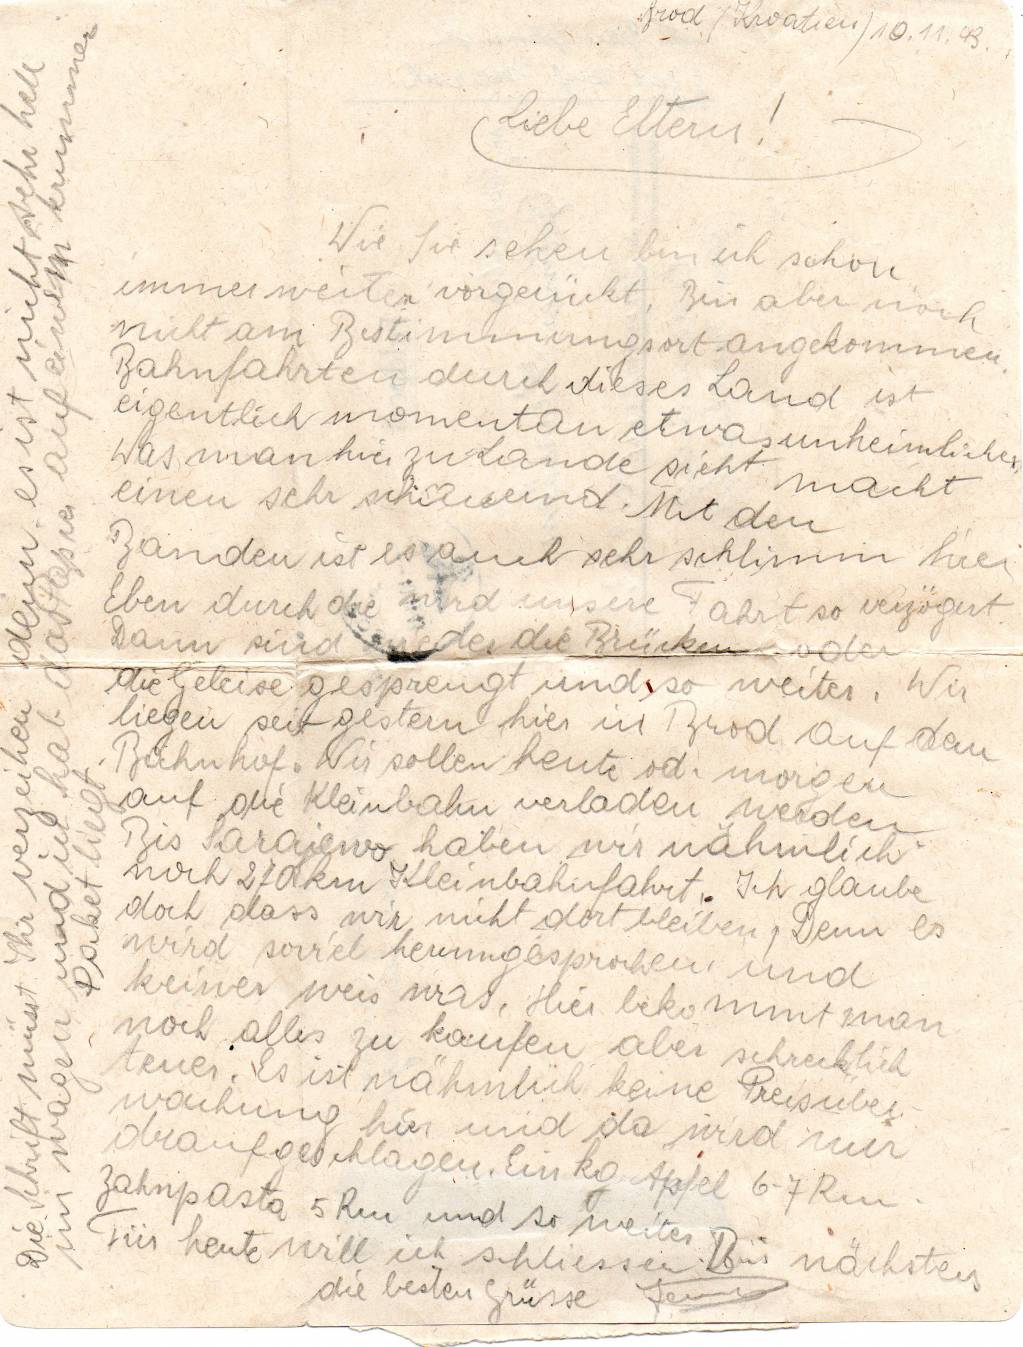 Brod (Kroatien) 10.11.43.
Liebe Eltern!
Wie Sie sehen bin ich schon
immer weiter vorgerückt. Bin aber noch
nicht am Bestimmungsort angekommen.
Bahnfahrten durch dieses Land ist
eigentlich momentan etwas unheimliches
Was man hier zu Lande sieht macht
einen sehr . Mit den
Banden ist es auch sehr schlimm hier
Eben durch die wird unsere Fahrt so verzögert.
Dann sind wieder die Brücken oder
die Geleise gesprengt und so weiter. Wir
liegen seit gestern hier in Brod auf den
Bahnhof. Wir sollen heute od. morgen
auf die Kleinbahn verladen werden
Bis Sarajewo haben wir nähmlich
noch 270 km Kleinbahnfahrt. Ich glaube
doch dass wir nicht dort bleiben, Denn es
wird soviel herumgesprochen und
keiner weis was. Hier bekommt man
noch alles zu kaufen aber schrecklich
teuer. Es ist nähmlich keine Preisüber-
wachung hier und da wird nur
draufgeschlagen. Ein kg Apfel 6-7 Rm.
Zahnpasta 5 Rm und so weiter
Für heute will ich schliessen Bis nächstens
die besten Grüsse
Die Schrift müsst Ihr verzeihen denn es ist nicht sehr hell
im wagen und ich hab das Papier auf einem krummen
Paket liegt.